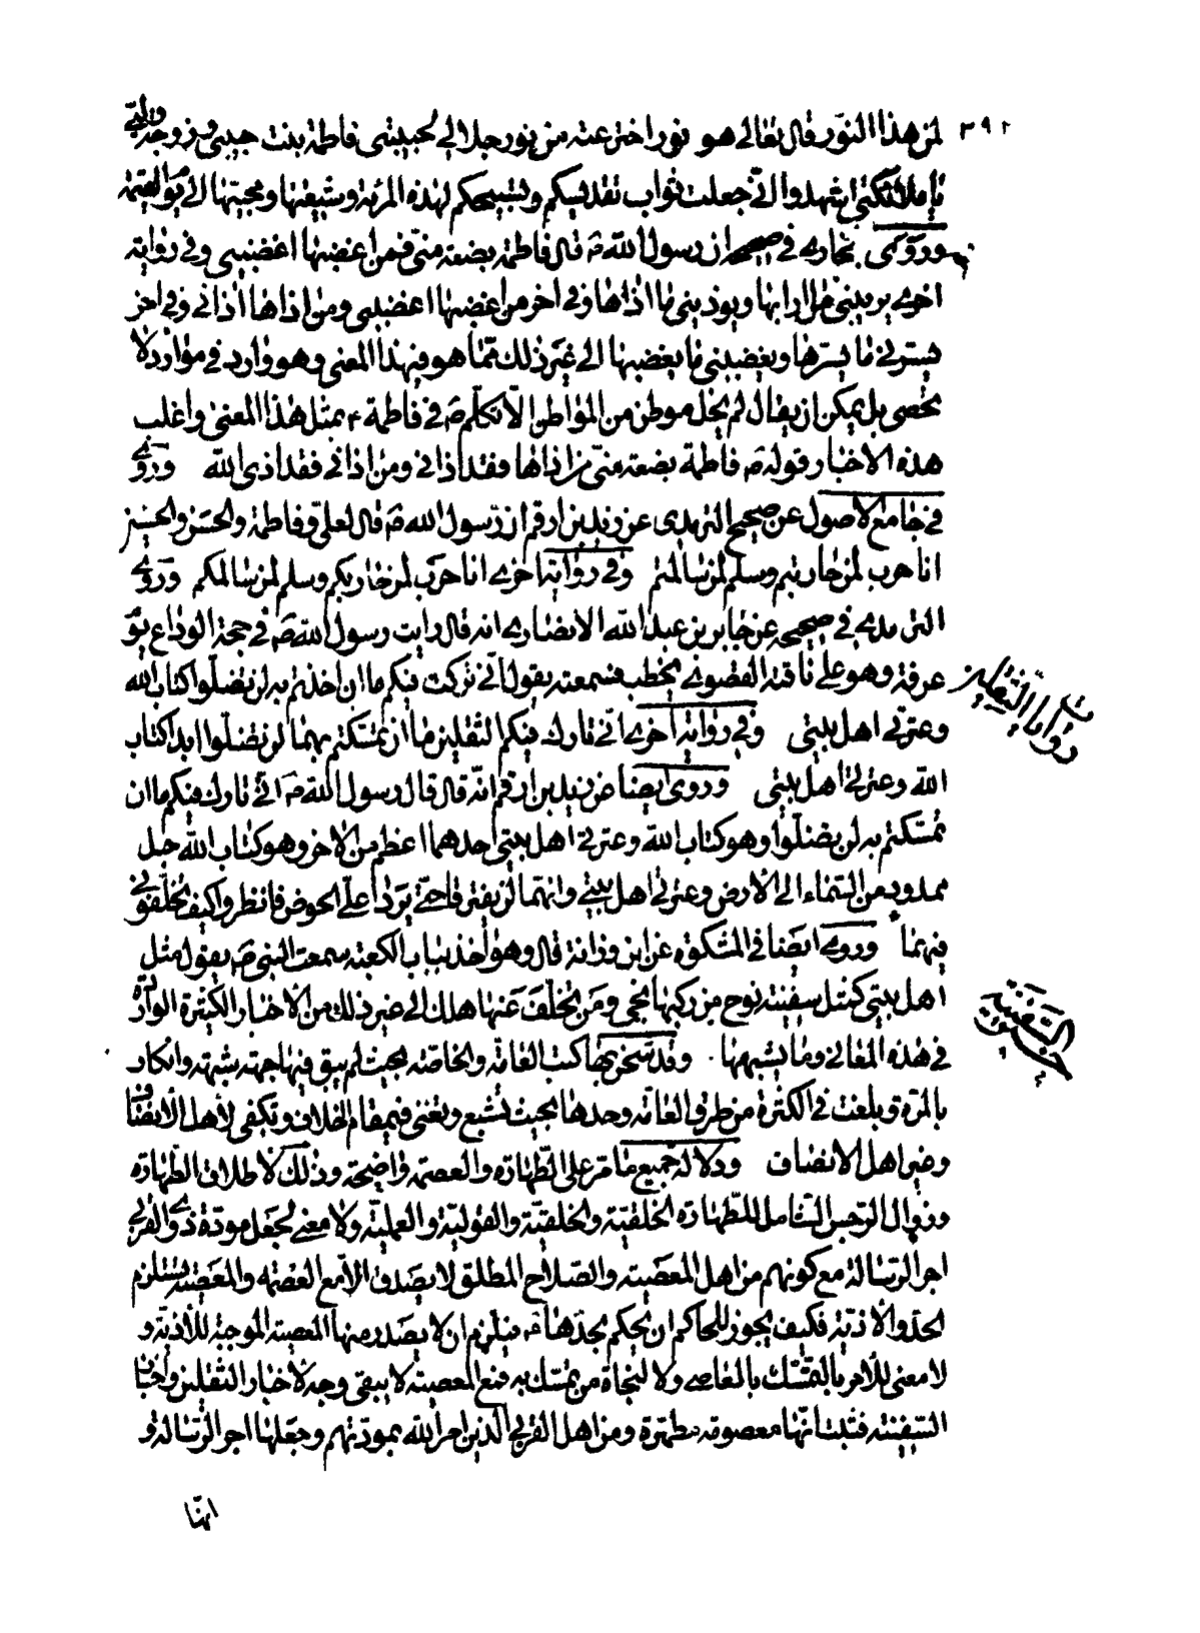 ٣٩٢
لمن هذا النور قال تعالى هو نور اخترعته من نور جلالي لحبيبتي فاطمة بنت حبيبي وزوجة وليي
يا ملائكتي اشهدوا اني جعلت ثواب تقديسكم وتسبيحكم لهذه المرءة وشيعتها ومحبيها الى يوم القيمة
وروى بخاري في صحيحه ان رسول الله ص قال فاطمة بضعة مني فمن اغضبها اغضبني وفي رواية
اخرى يريبني ما ارابها ويوذيني ما اذاها وفي اخر من اغضبها اغضبني ومن اذاها اذاني وفي اخر
يسرني ما يسرها ويغضبني ما يغضبها الى غير ذلك مما هو بهذا المعنى وهو وارد في موارد لا
تحصى بل يمكن ان يقال لم يخل موطن من المواطن الا تكلم ص في فاطمة ع بمثل هذا المعنى واغلب
هذه الاخبار قوله ص فاطمة بضعة مني من اذاها فقد اذاني ومن اذاني فقد اذى الله وروى
في جامع الاصول عن صحيح الترمذي عن زيد بن ارقم ان رسول الله ص قال لعلي وفاطمة والحسن والحسين
انا حرب لمن حاربتم وسلم لمن سالمتم وفي رواية اخرى انا حرب لمن حاربكم وسلم لمن سالمكم وروى
الترمذي في صحيحه عن جابر بن عبد الله الانصاري انه قال رايت رسول الله ص في حجة الوداع يوم
عرفة وهو على ناقته القصوى يخطب فسمعته يقول اني تركت فيكم ما ان اخذتم به لن تضلوا كتاب الله
روايات الثقلين
وعترتي اهل بيتي وفي رواية اخرى اني تارك فيكم الثقلين ما ان تمسكتم بهما لن تضلوا ابدا كتاب
الله وعترتي اهل بيتي وروى ايضا عن زيد بن ارقم انه قال قال رسول الله ص اني تارك فيكم ما ان
تمسكتم به لن تضلوا وهو كتاب الله وعترتي اهل بيتي احدهما اعظم من الاخر وهو كتاب الله حبل
ممدود من السماء الى الارض وعترتي اهل بيتي وانهما لن يفترقا حتى يردا علي الحوض فانظروا كيف تخلفوني
فيهما وروى ايضا في المشكوة عن قال وهو اخذ بباب الكعبة سمعت النبي ص يقول مثل
اهل بيتي كمثل سفينة نوح من ركبها نجي ومن تخلف عنها هلك الى غير ذلك من الاخبار الكثيرة الواردة
السفينة
في هذه المعاني وما يشبهها وقد كتب العامة والخاصة بحيث لم يبق فيها جهة شبهة وانكار
بالمرة وبلغت في الكثرة من طرق العامة وحدها بحيث تشبع وتغني في مقام الخلاف وتكفي لأهل الأنصاف
وغير اهل الانصاف ودلالة جميع ما مر على الطهارة والعصمة واضحة وذلك لاطلاق الطهارة
وزوال الرجس الشامل للطهارة الخلقية والخلقية والقولية والعملية ولا معنى لجعل مودة ذوي القربى
اجر الرسالة مع كونهم من اهل المعصية والصلاح المطلق لا يصدق الا مع العصمة والمعصية تستلزم
الحد والاذية فكيف يجوز للحاكم ان يحكم بحدها ع فيلزم ان لا يصدر منها المعصية الموجبة للأذية و
لا معنى للأمر بالتمسك بالعاصي ولا لنجاة من تمسك به فمع المعصية لا يبقى وجه لاخبار الثقلين واخبار
السفينة فثبت انها معصومة مطهرة ومن اهل القربى الذين امر الله بمودتهم وجعلها اجر الرسالة و
انها